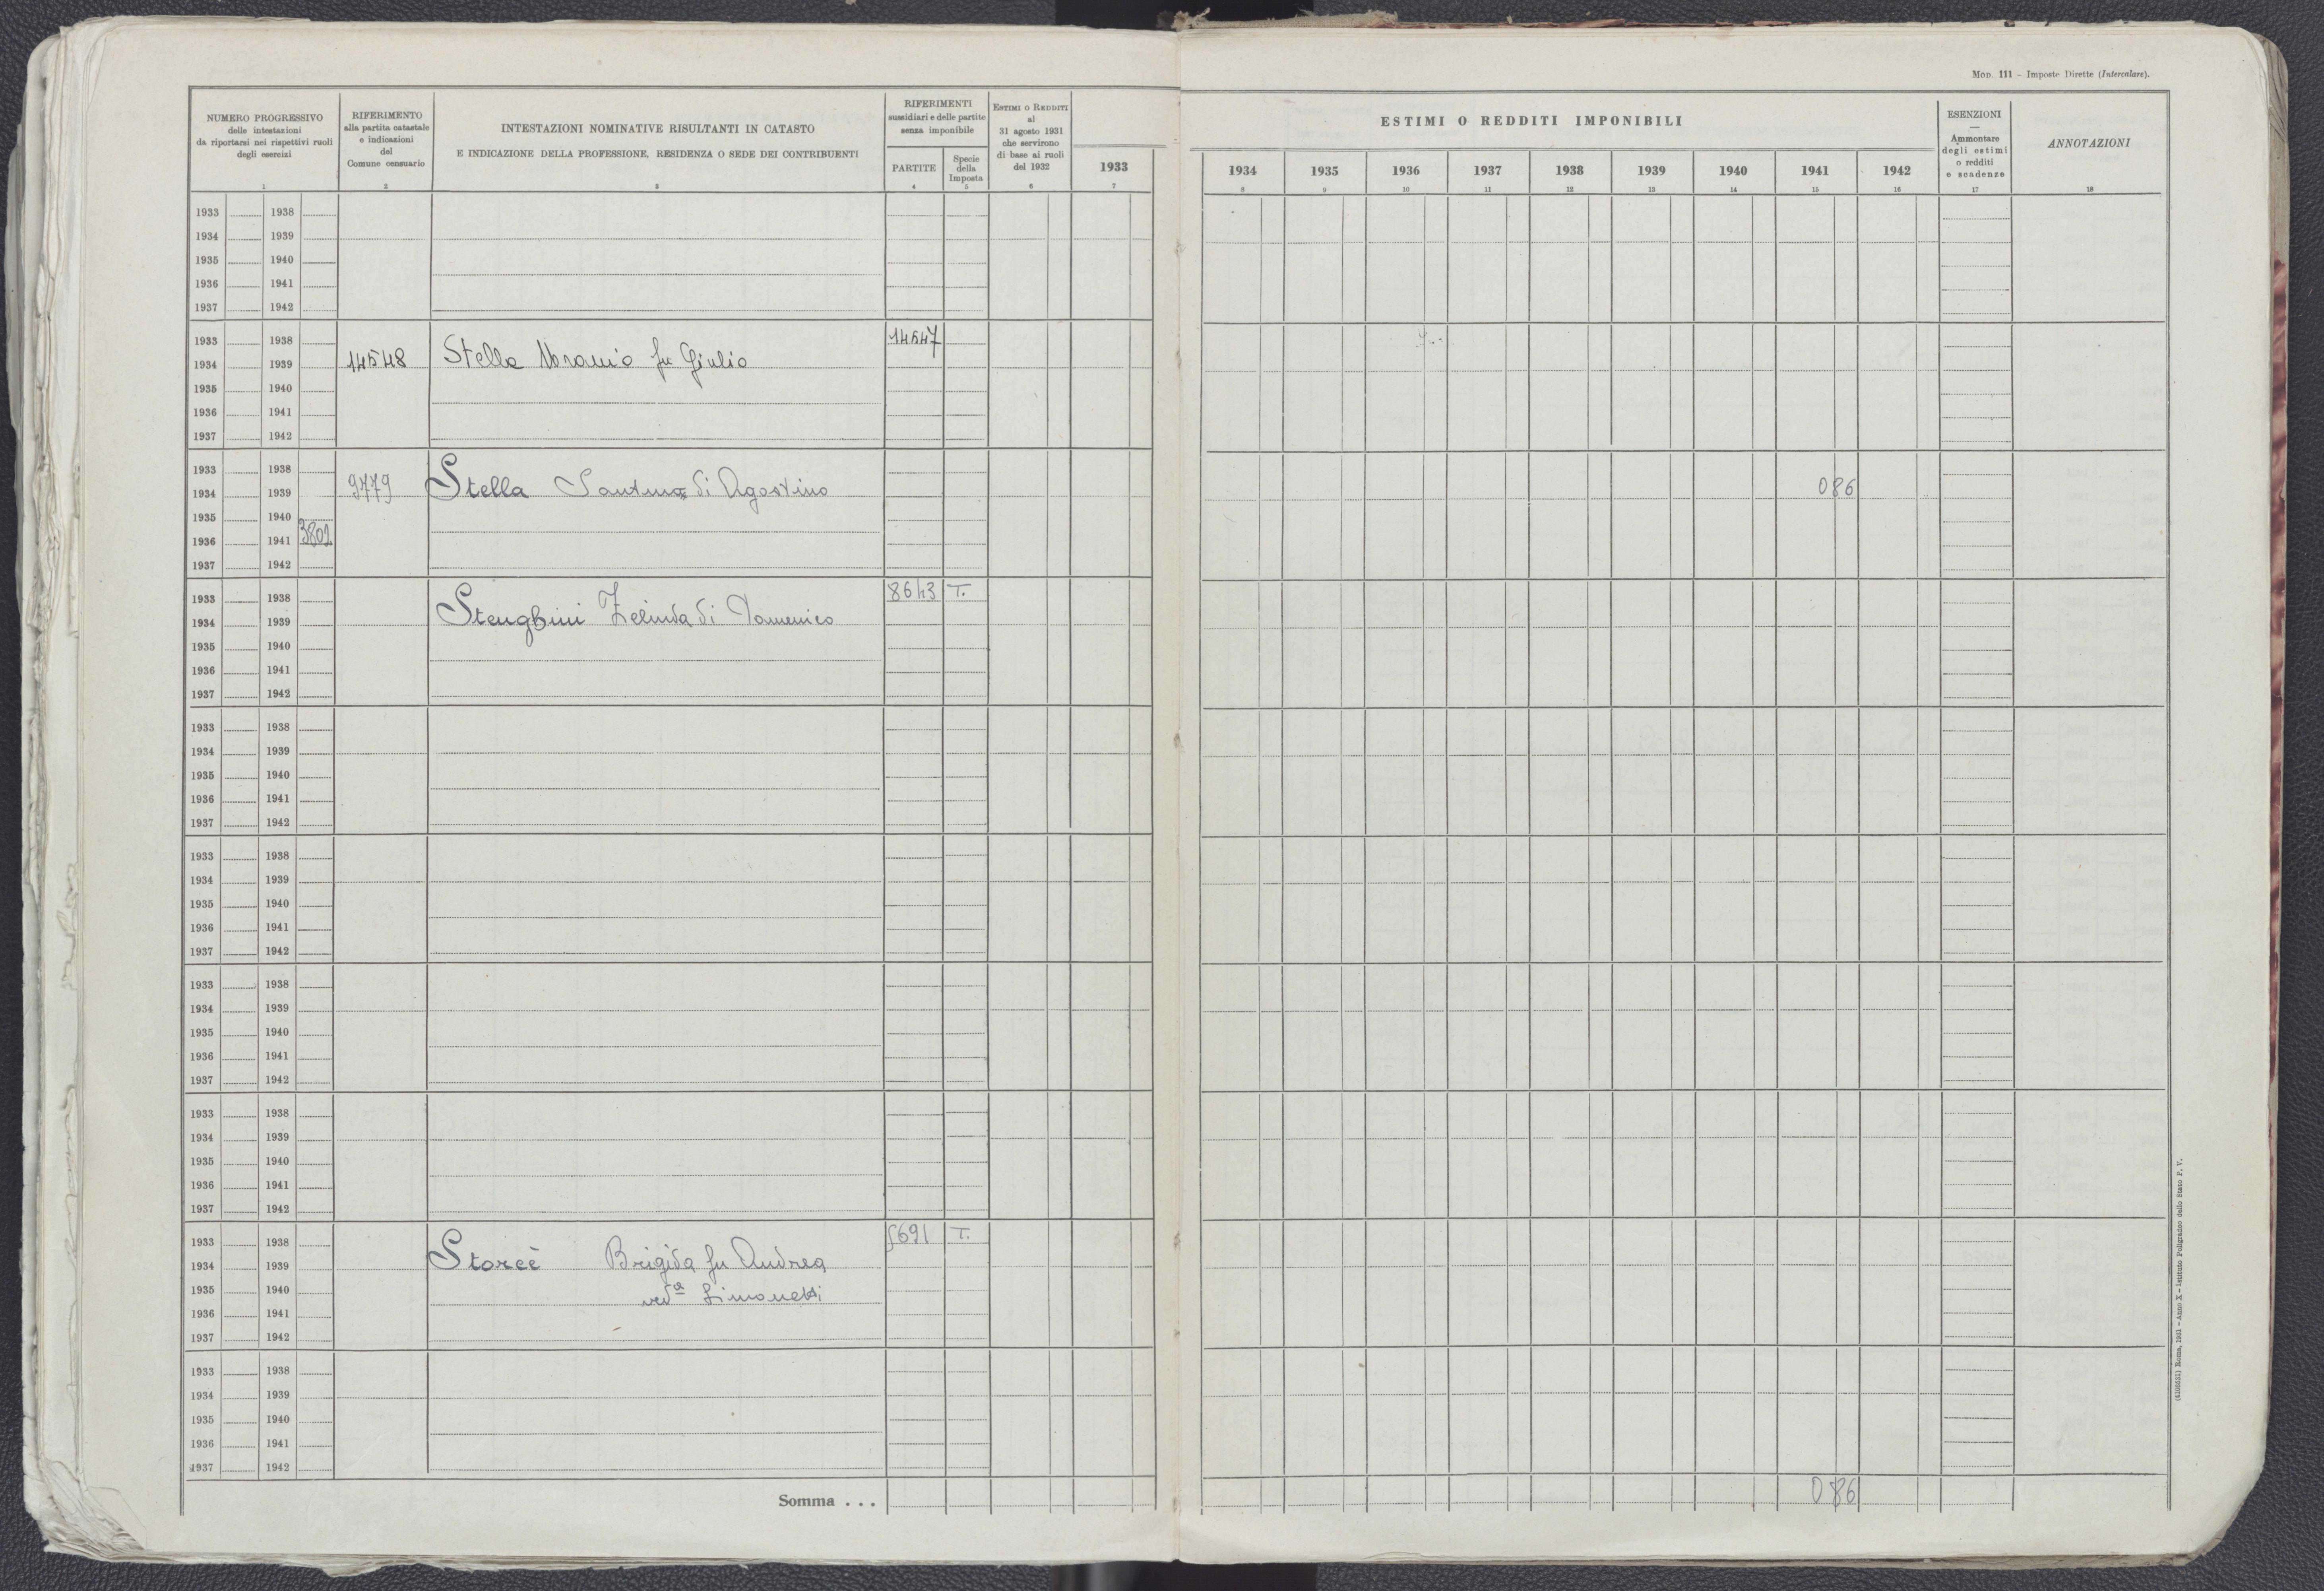 Mod. 111 – Imposte Dirette (Intercalare).
NUMERO PROGRESSIVO
delle intestazioni
da riportarsi nei rispettivi ruoli
degli esercizi
1
RIFERIMENTO
alla partita catastale
e indicazioni
del
Comune censuario
2
INTESTAZIONI NOMINATIVE RISULTANTI IN CATASTO
E INDICAZIONE DELLA PROFESSIONE, RESIDENZA O SEDE DEI CONTRIBUENTI
3
RIFERIMENTI
sussidiari e delle partite
senza imponibile
PARTITE
4
Specie
della
Imposta
5
ESTIMI O REDDITI
al
31 agosto 1931
che servirono
di base ai ruoli
del 1932
6
1933
7
ESTIMI O REDDITI IMPONIBILI
1934 1935 1936 1937 1938 1939 1940 1941 1942
8 9 10 11 12 13 14 15 16
ESENZIONI
—
Ammontare
degli estimi
o redditi
e scadenze
17
ANNOTAZIONI
18
1933 1938
1934 1939
1935 1940
1936 1941
1937 1942
1933 1938 14547
1934 1939 14548 Stella fu Giulio
1935 1940
1936 1941
1937 1942
1933 1938
1934 1939 9779 Stella Santina di Agostino 086
1935 1940
1936 1941 3802
1937 1942
1933 1938 8643 T.
1934 1939 Stenghini Zelinda di Domenico
1935 1940
1936 1941
1937 1942
1933 1938
1934 1939
1935 1940
1936 1941
1937 1942
1933 1938
1934 1939
1935 1940
1936 1941
1937 1942
1933 1938
1934 1939
1935 1940
1936 1941
1937 1942
1933 1938
1934 1939
1935 1940
1936 1941
1937 1942
1933 1938 5691 T.
1934 1939 Storcè Brigida fu Andrea
1935 1940 ved.a Simonetti
1936 1941
1937 1942
1933 1938
1934 1939
1935 1940
1936 1941
1937 1942
Somma . . . 086
(4109551) Roma, 1931 – Anno X – Istituto Poligrafico dello Stato P. V.